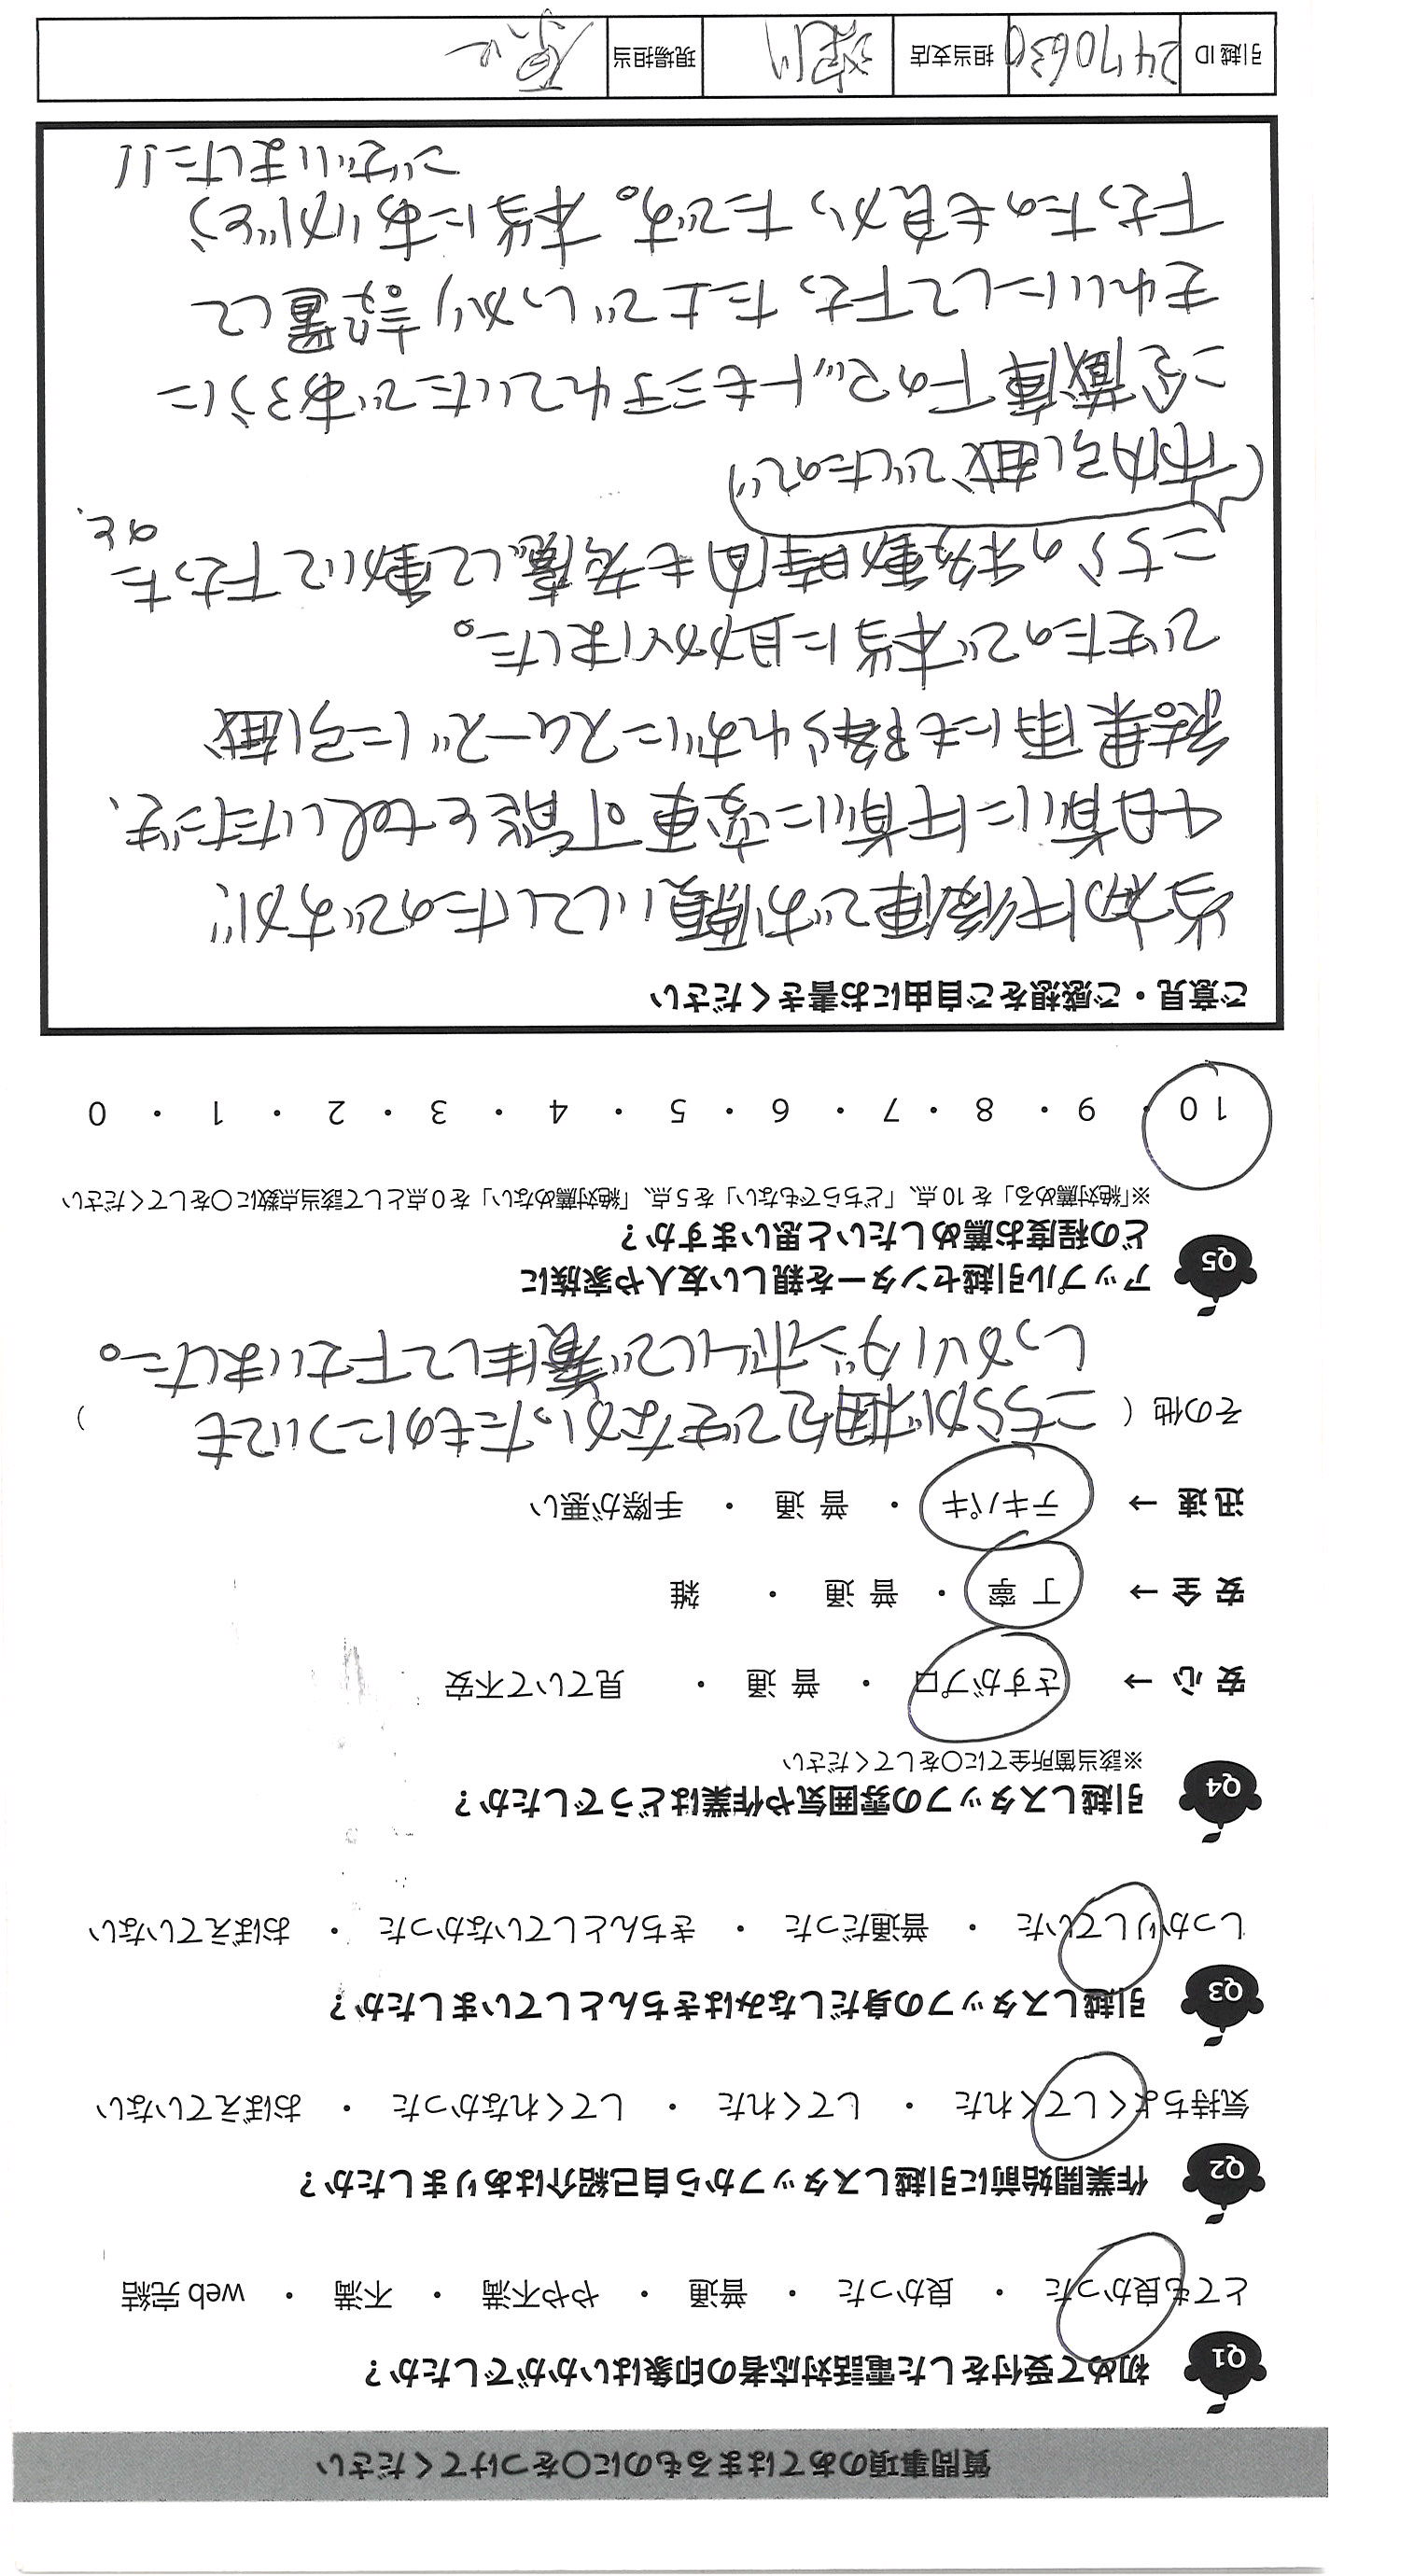 質問事項のあてはまるものに〇をつけてください
Q1 初めて受付をした電話対応者の印象はいかがでしたか？
とても良かった ・ 良かった ・ 普通 ・ やや不満 ・ 不満 ・ web 完結
Q2 作業開始前に引越しスタッフから自己紹介はありましたか？
気持ちよくしてくれた ・ してくれた ・ してくれなかった ・ おぼえていない
Q3 引越しスタッフの身だしなみはきちんとしていましたか？
しっかりしていた ・ 普通だった ・ きちんとしていなかった ・ おぼえていない
Q4 引越しスタッフの雰囲気や作業はどうでしたか？
※該当箇所全てに〇をしてください
安 心 → さすがプロ ・ 普 通 ・ 見ていて不安
安 全 → 丁 寧 ・ 普 通 ・ 雑
迅 速 → テキパキ ・ 普 通 ・ 手際が悪い
その他（ こちらが梱包できなかったものについても ）
しっかりダンボールで養生して下さいました。
Q5 アップル引越センターを親しい友人や家族に
どの程度お薦めしたいと思いますか？
※「絶対薦める」を 10 点、「どちらでもない」を 5 点、「絶対薦めない」を 0 点として該当点数に〇をしてください
10 ・ 9 ・ 8 ・ 7 ・ 6 ・ 5 ・ 4 ・ 3 ・ 2 ・ 1 ・ 0
ご意見・ご感想をご自由にお書きください
当初は午後便でお願いしてしたのですが、
午前に変更可能とtelいただき、
結果雨にも降られずにスムーズに引越
できたので本当に助かりました。
こちらの移動時間も考慮して動いて下さった
のと、
(市内引越でしたので)
冷蔵庫下のマットもミチれていたであろうに
きれいにして下さった上でしっかり設置して
下さったのも良かったです。本当にありがとう
ございました!!
引越 ID 2470630 担当支店 現場担当